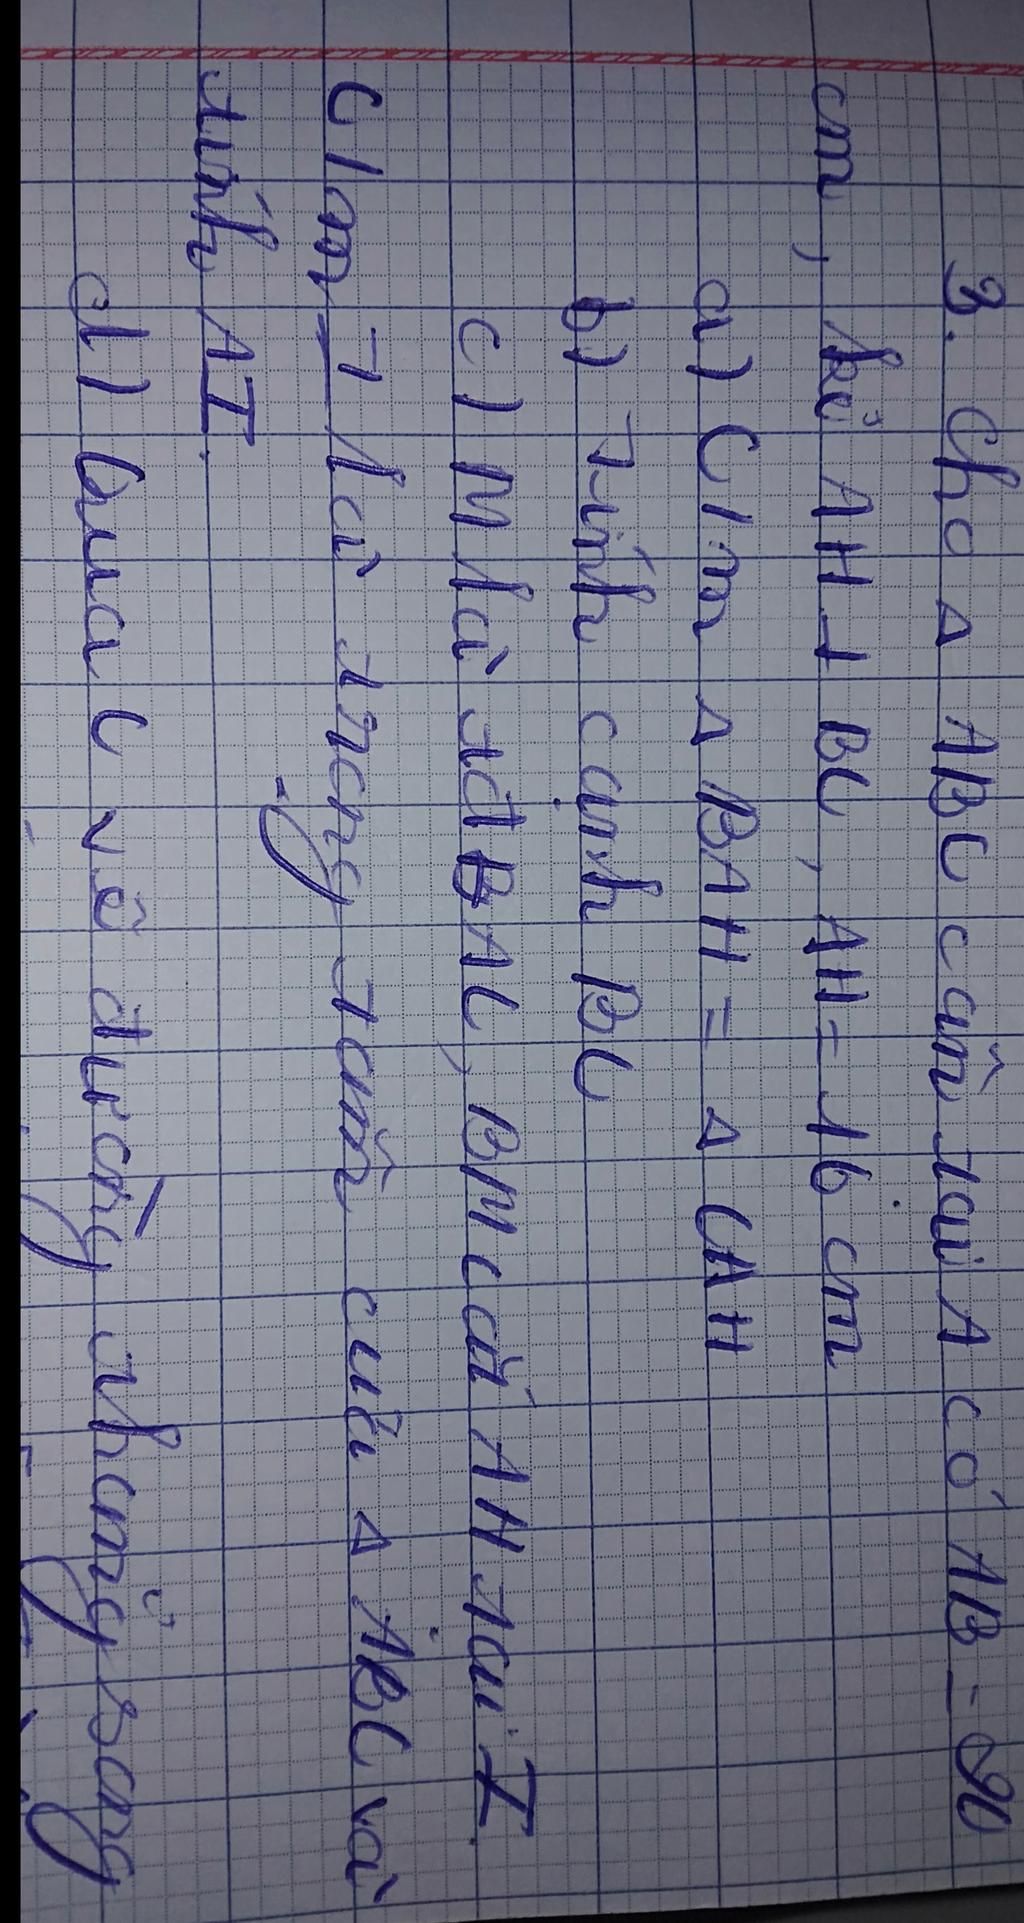 3. Cho Δ ABC cân tại A có AB = 20
cm, kẻ AH ⊥ BC, AH = 16 cm
a) C/m Δ BAH = Δ CAH
b) Tính cạnh BC
c) M là tđ BAC, BM cắt AH tại I.
C/m I là trọng tâm của Δ ABC và
tính AI.
d) Qua C vẽ đường thẳng song